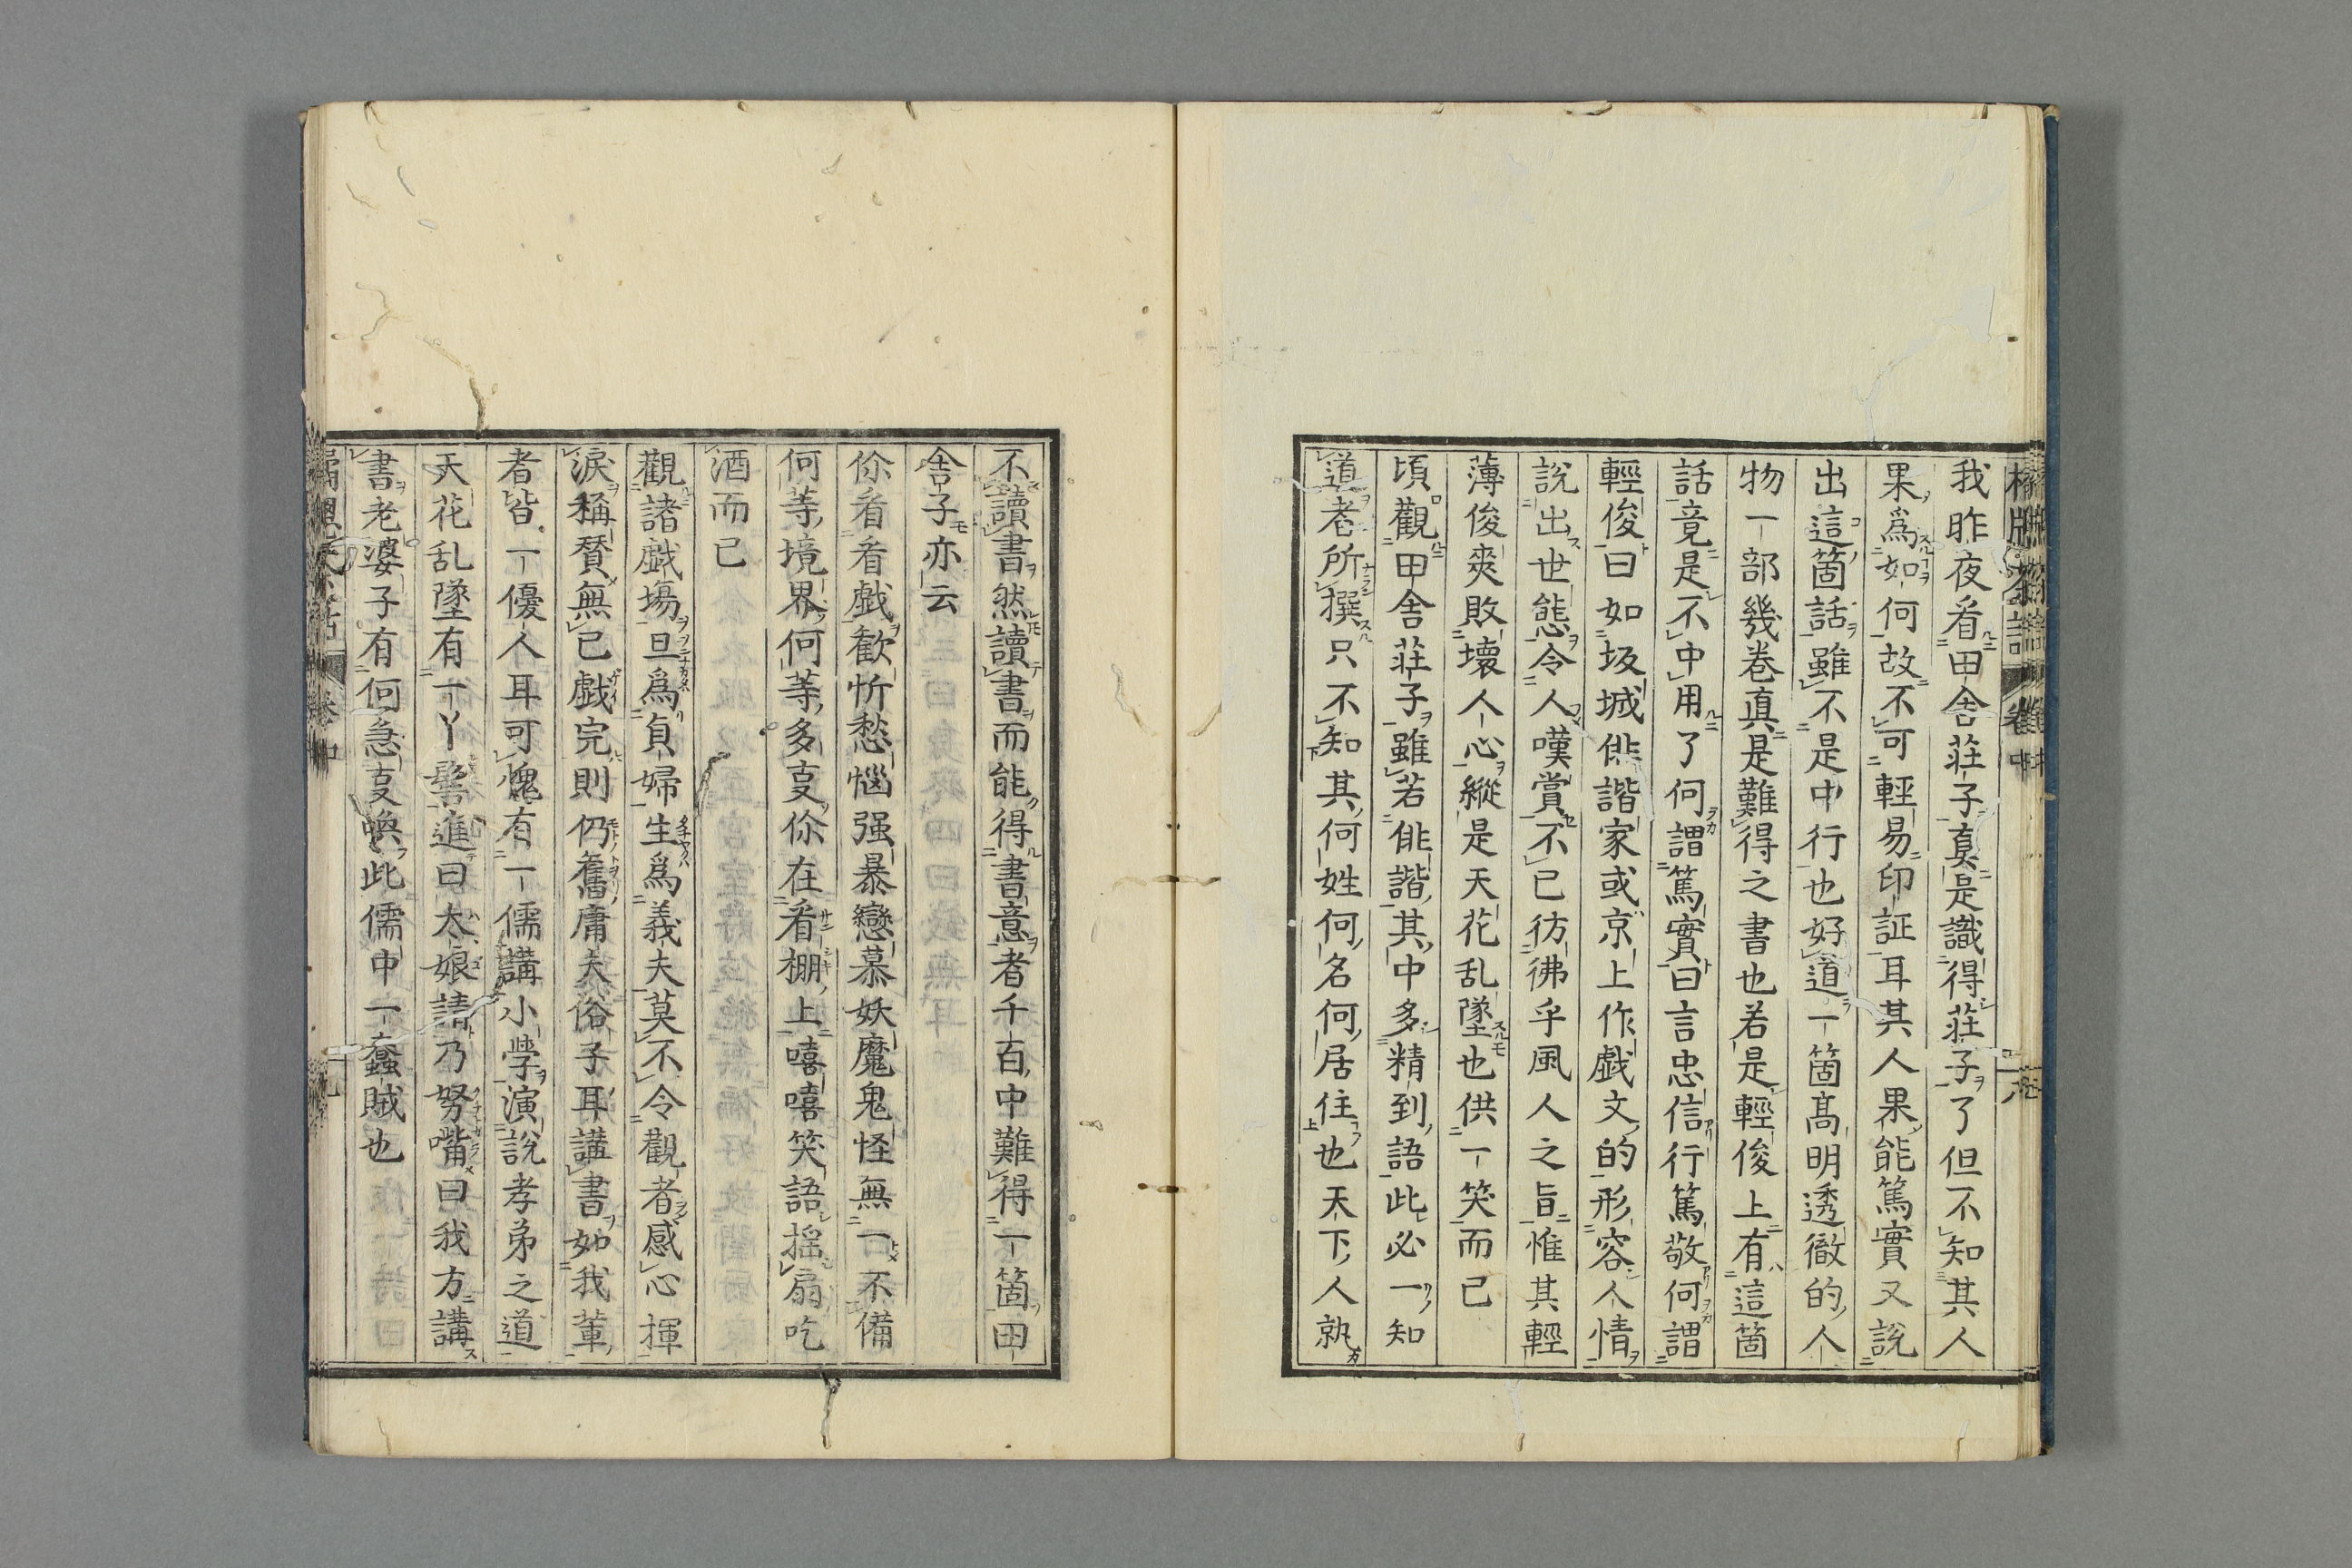 我昨夜看田舍莊子真是識得莊子了但不知其人
果爲如何故不可輕易印証耳其人果能篤實又說
出這箇話雖不是中行也好道一箇髙明透徹的人
物一部幾卷真是難得之書也若是輕俊上有這箇
話竟是不中用了何謂篤實曰言忠信行篤敬何謂
輕俊曰如坂城俳諧家或京上作戯文的形容人情
說出世態令人嘆賞不已彷彿乎風人之旨惟其輕
薄俊爽敗壞人心縱是天花乱墜也供一笑而已
頃觀田舍莊子雖若俳諧其中多精到語此必一知
道者所撰只不知其何姓何名何居住也天下人孰
不讀書然讀書而能得書意者千百中難得一箇田
舍子亦云
你看看戯歡忻愁惱强暴戀慕妖魔鬼怪無一不備
何等境界何等多㕝你在看棚上嘻嘻笑語揺扇吃
酒而已
觀諸戯塲旦爲貞婦生爲義夫莫不令觀者感心揮
淚稱賛無已戯完則仍舊庸夫俗子耳講書如我輩
者皆一優人耳可愧有一儒講小学演說孝弟之道
天花乱墜有一丫鬟進曰太娘請乃努嘴曰我方講
書老婆子有何急㕝喚此儒中一蠹賊也